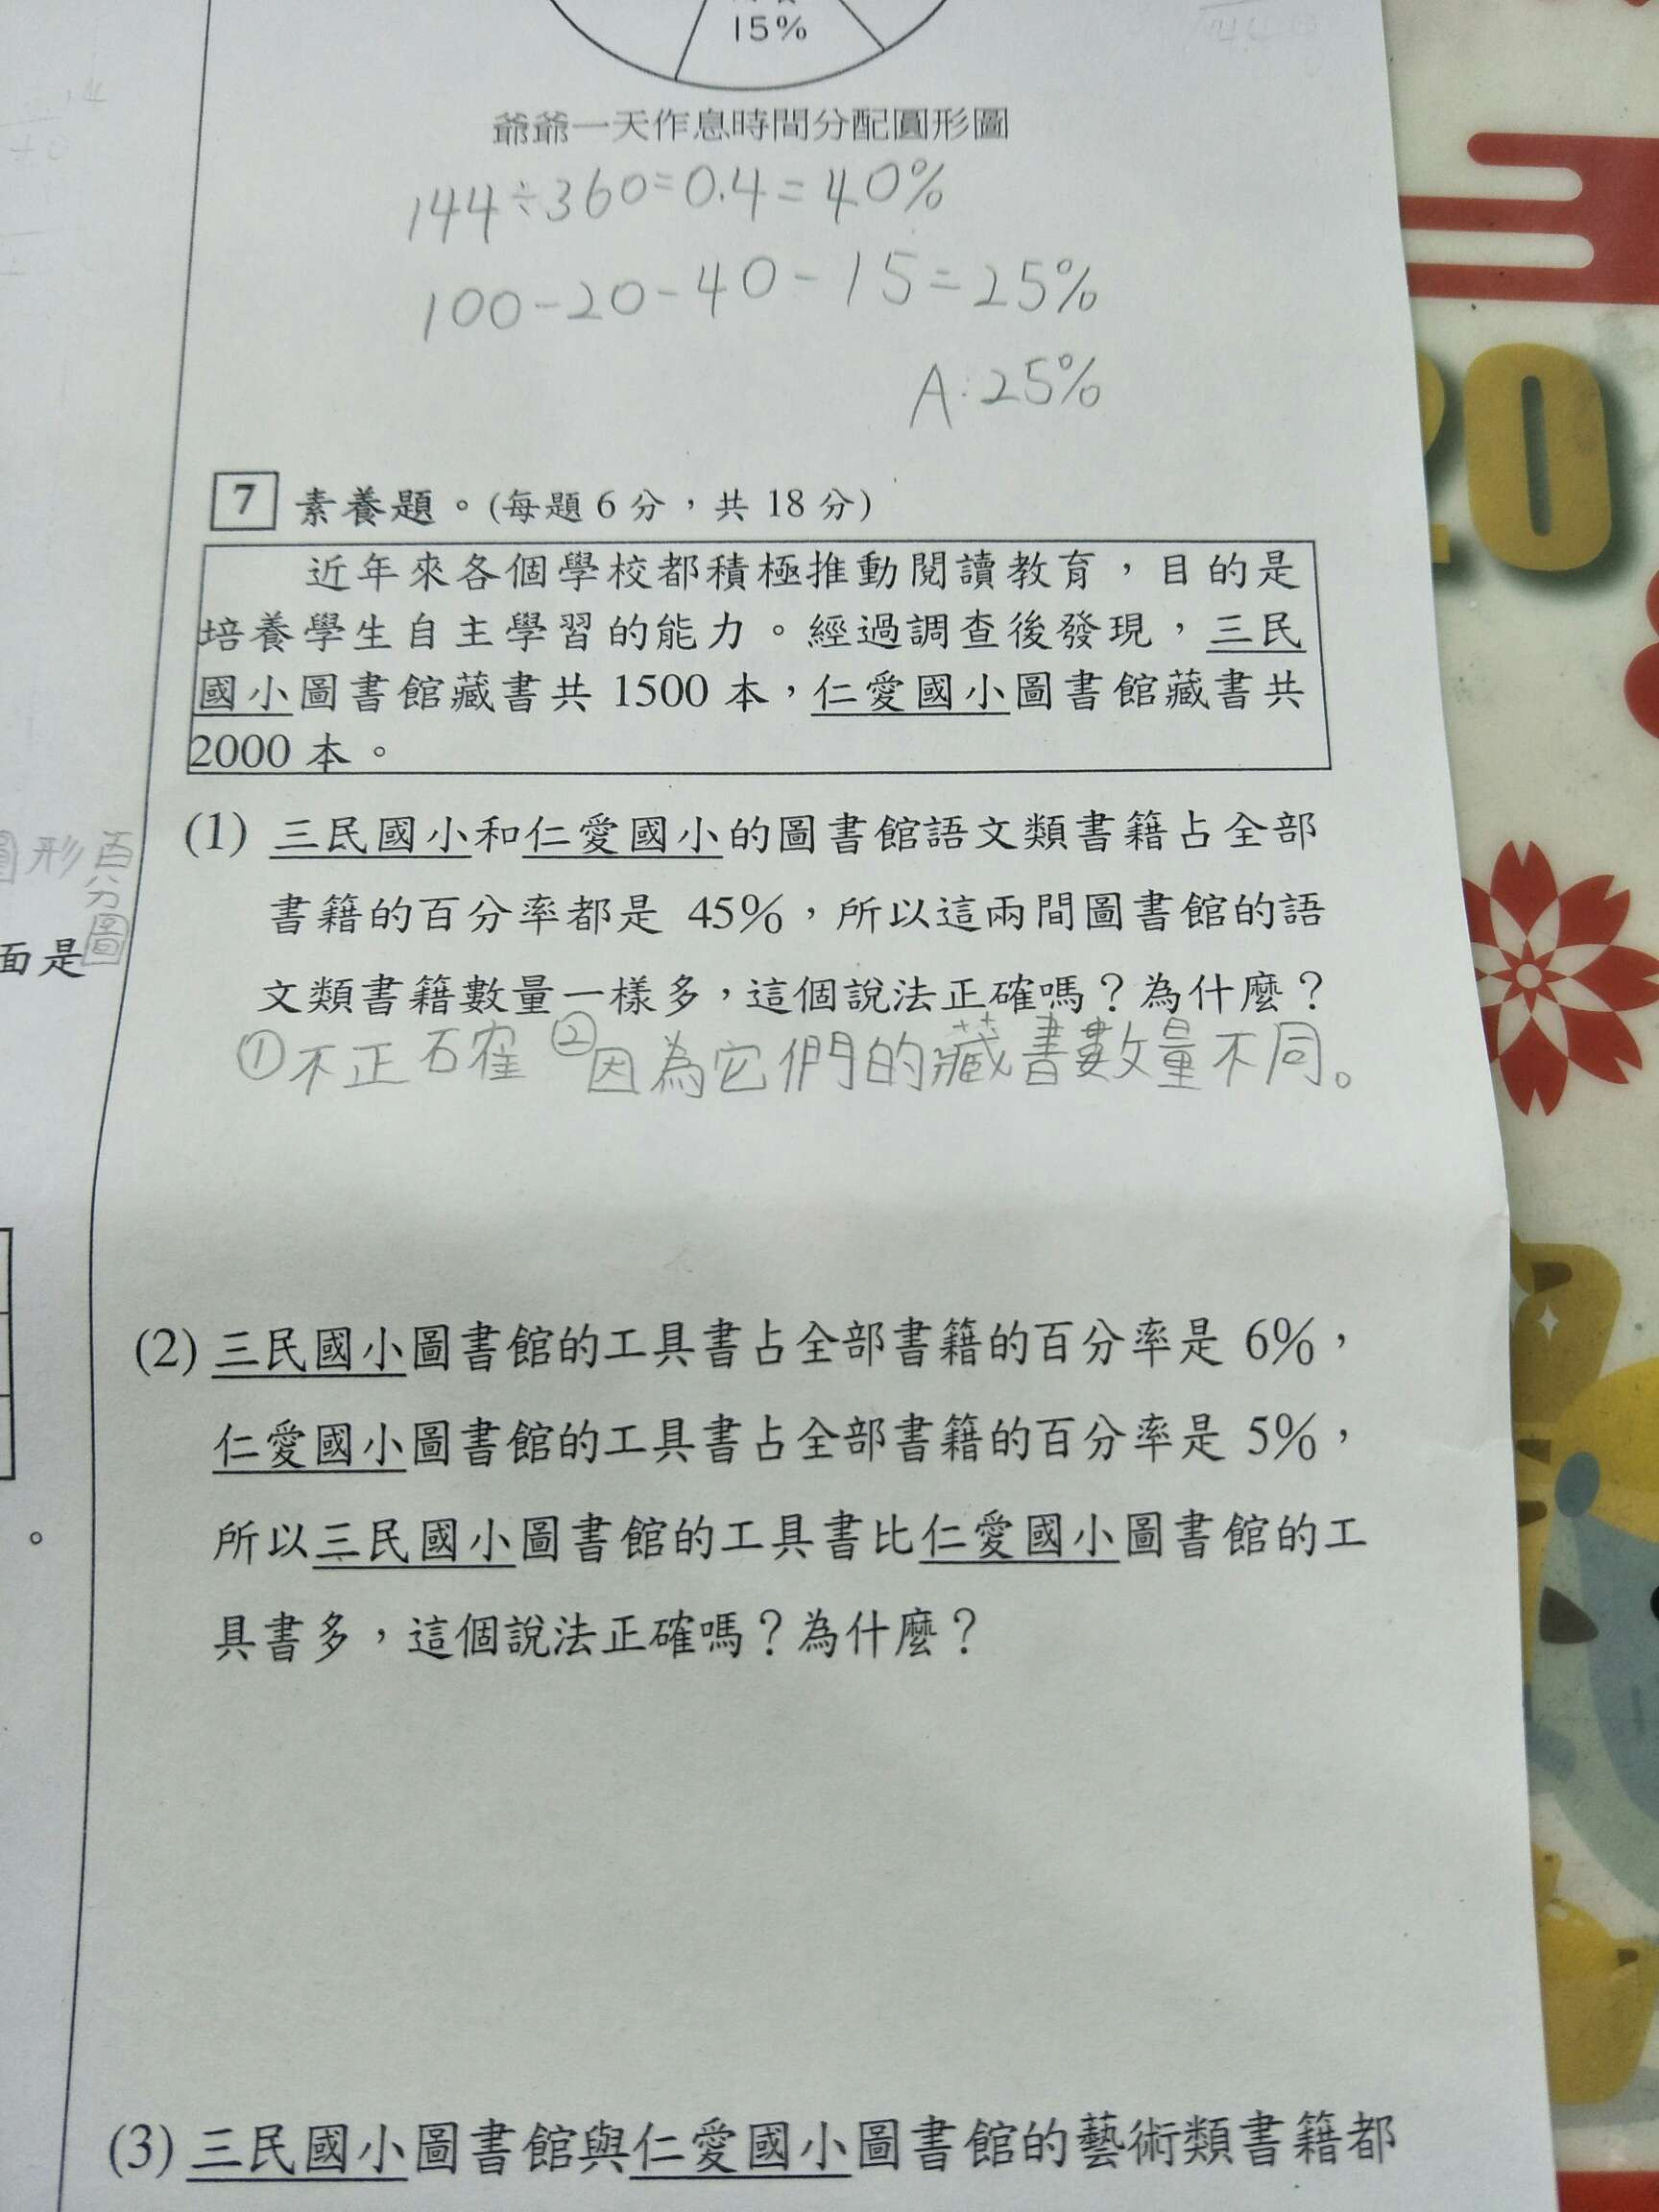 15%
爺爺一天作息時間分配圓形圖
144÷360=0.4=40%
100-20-40-15=25%
A:25%
20
7 素養題。(每題6分，共18分)
近年來各個學校都積極推動閱讀教育，目的是
培養學生自主學習的能力。經過調查後發現，三民
國小圖書館藏書共1500本，仁愛國小圖書館藏書共
2000本。
(1) 三民國小和仁愛國小的圖書館語文類書籍占全部
書籍的百分率都是45%，所以這兩間圖書館的語
文類書籍數量一樣多，這個說法正確嗎？為什麼？
①不正確 ②因為它們的藏書數量不同。
形百分圖
面是
(2) 三民國小圖書館的工具書占全部書籍的百分率是6%，
仁愛國小圖書館的工具書占全部書籍的百分率是5%，
所以三民國小圖書館的工具書比仁愛國小圖書館的工
具書多，這個說法正確嗎？為什麼？
。
(3) 三民國小圖書館與仁愛國小圖書館的藝術類書籍都